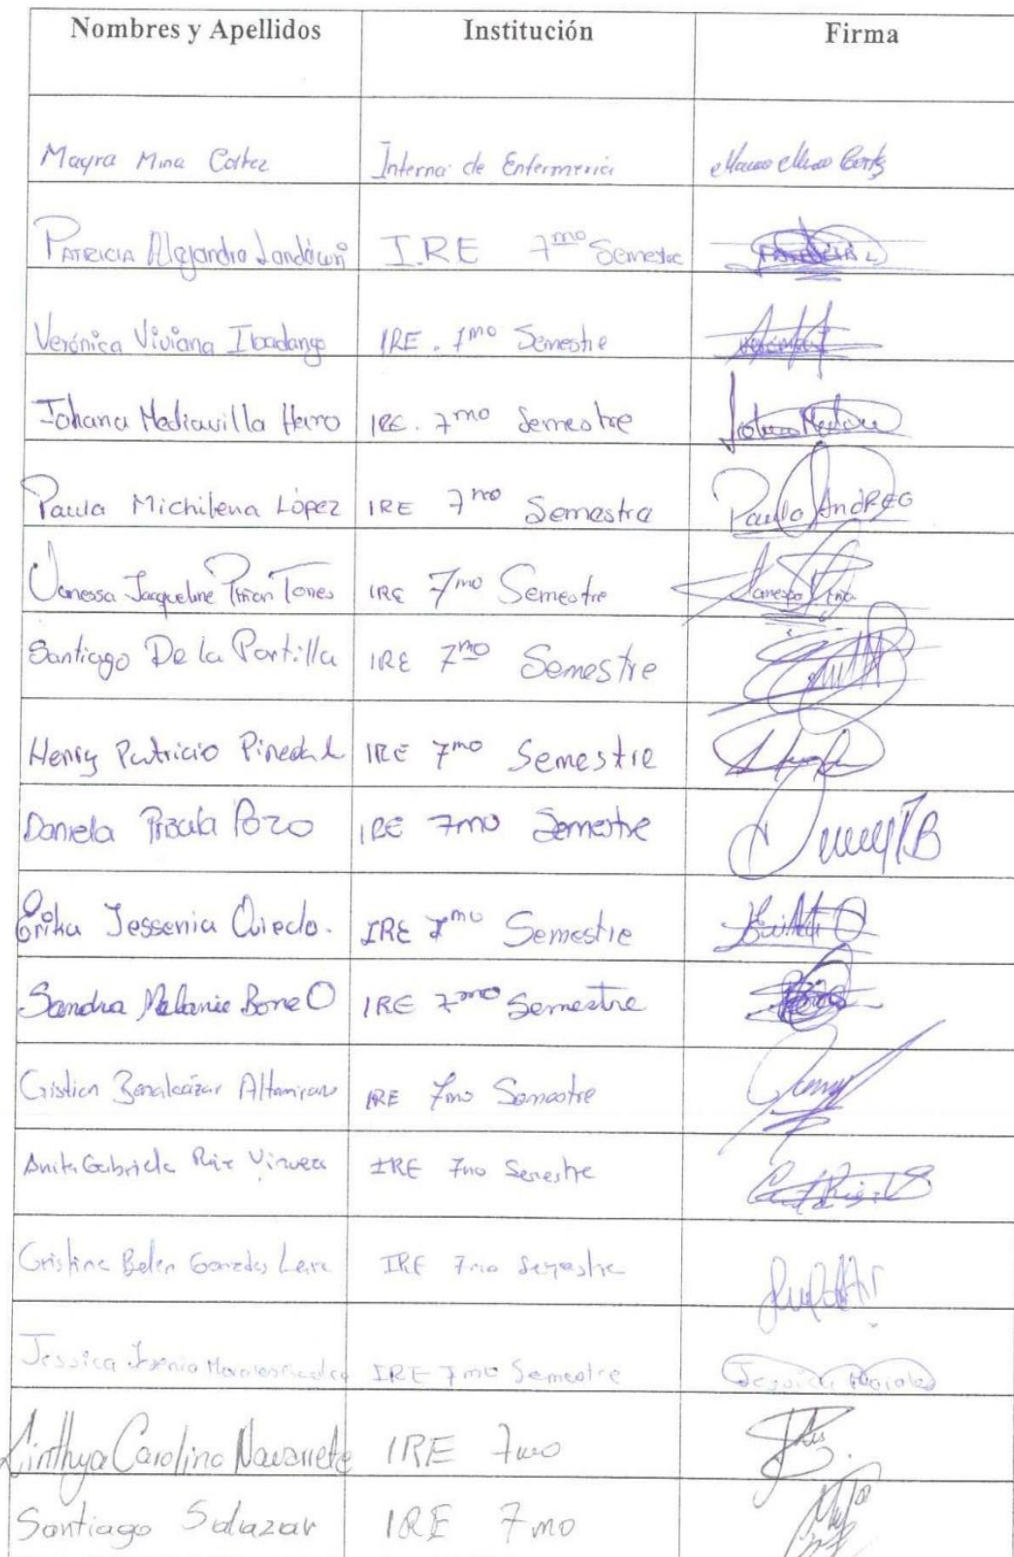 Nombres y Apellidos Institución Firma
Mayra Mina Cortez Interna de Enfermeria
PATRICIA Alejandra Landázuri I.RE 7mo Semestre
Verónica Viviana Ibadango IRE. 7mo Semestre
Johana Mediavilla Haro IRE. 7mo Semestre Johana
Paula Michilena López IRE 7mo Semestra Paula ANDREO
Vanessa Jacqueline Torres IRE 7mo Semestre Vanessa
Santiago De la Portilla IRE 7mo Semestre
Henry Patricio Pineda L IRE 7mo Semestre
Daniela Pozo IRE 7mo Semestre
Erika Jessenia Oviedo. IRE 7mo Semestre
Sandra Melanie Bone O IRE 7mo Semestre
Cristian Benalcázar Altamirano IRE 7mo Semestre
Anita Gabriela IRE 7mo Semestre
Cristina Belen IRE 7mo Semestre
Jessica IRE 7mo Semestre Jessica Morales
Cinthya Carolina Navarrete IRE 7mo
Santiago Salazar IRE 7mo